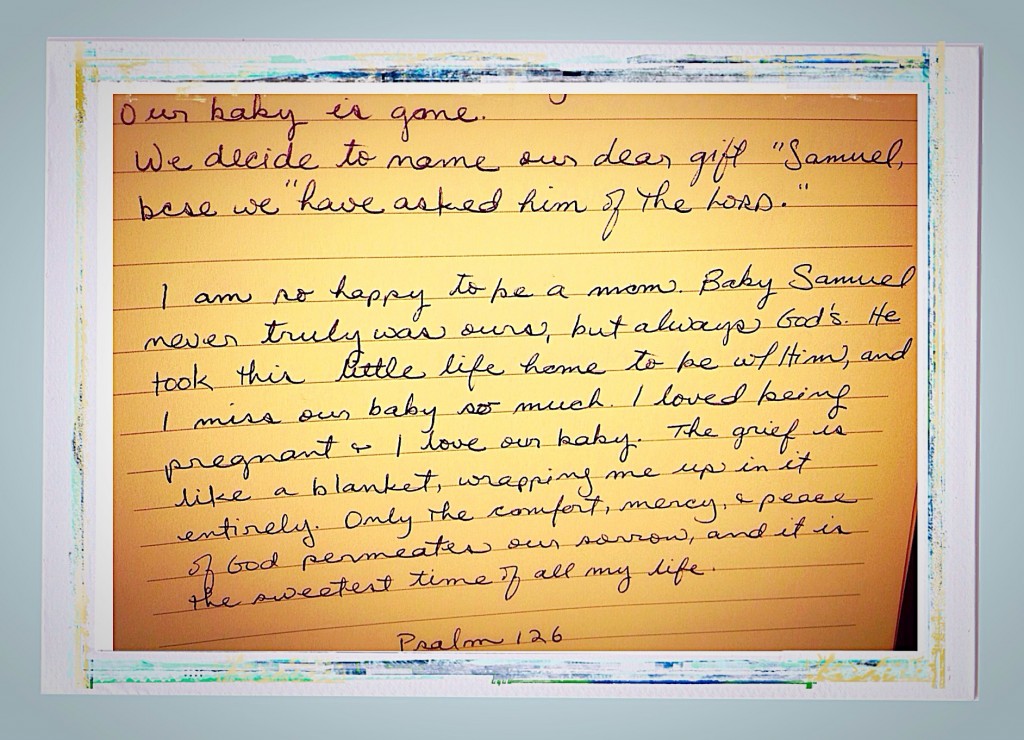 Our baby is gone.
We decide to name our dear gift "Samuel,
bcse we "have asked him of The LORD."
I am so happy to be a mom. Baby Samuel
never truly was ours, but always God's. He
took this little life home to be w/ Him, and
I miss our baby so much. I loved being
pregnant & I love our baby. The grief is
like a blanket, wrapping me up in it
entirely. Only the comfort, mercy, & peace
of God permeates our sorrow, and it is
the sweetest time of all my life.
Psalm 126